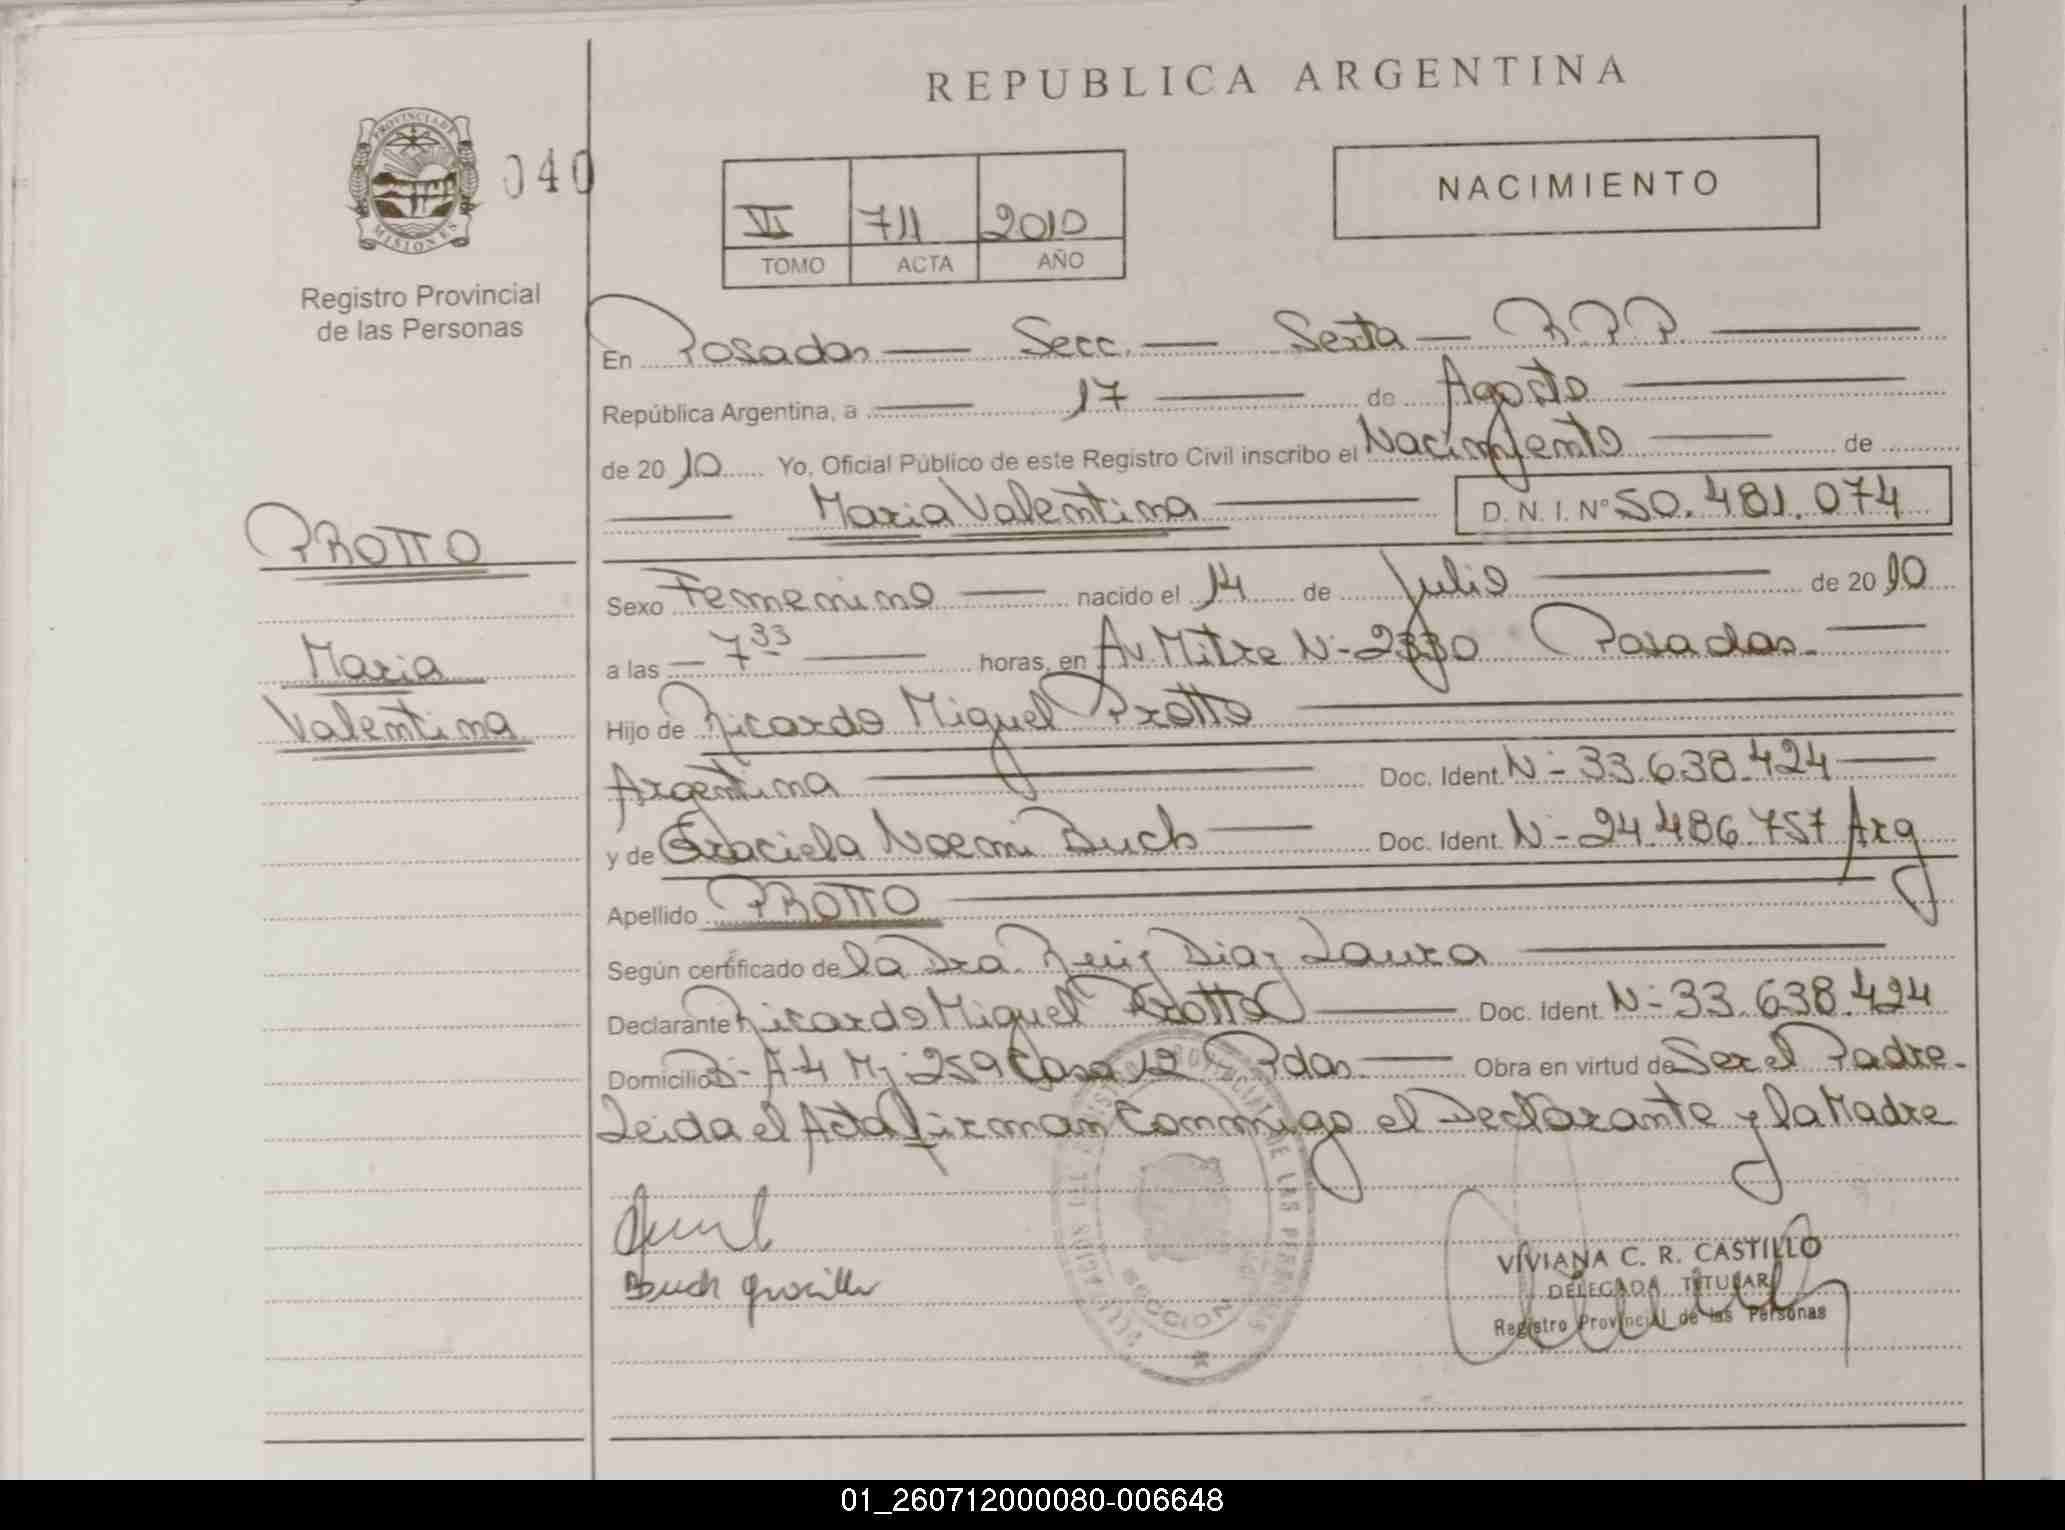 REPUBLICA ARGENTINA
PROVINCIA DE
MISIONES
040
Registro Provincial
de las Personas
VI 711 2010
TOMO ACTA AÑO
NACIMIENTO
En Posadas — Secc. — Sexta — R.P.P.
República Argentina, a — 17 — de Agosto
de 2010 Yo, Oficial Público de este Registro Civil inscribo el Nacimiento — de
— Maria Valentina — D. N. I. Nº 50.481.074
PROTTO
Maria
Valentina
Sexo Femenino — nacido el 14 de Julio — de 2010
a las — 7 33 — horas, en Av. Mitre N- 2330 Posadas. —
Hijo de Ricardo Miguel Protto —
Argentina — Doc. Ident. N- 33.638.424 —
y de Graciela Noemi Buch — Doc. Ident. N- 24.486.757 Arg
Apellido PROTTO —
Según certificado de la Dra. Ruiz Diaz Laura —
Declarante Ricardo Miguel Protto — Doc. Ident. N- 33.638.424
Domicilio B- A-4 M; 259 Casa 12 Pdas. — Obra en virtud de Ser el Padre.
Leida el Acta firman Conmigo el Declarante y la Madre
Buch Graciela
REGISTRO PROVINCIAL DE LAS PERSONAS
SECCION
VIVIANA C. R. CASTILLO
DELEGADA TITULAR
Registro Provincial de las Personas
01_260712000080-006648